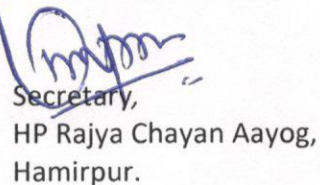 Secretary,
HP Rajya Chayan Aayog,
Hamirpur.